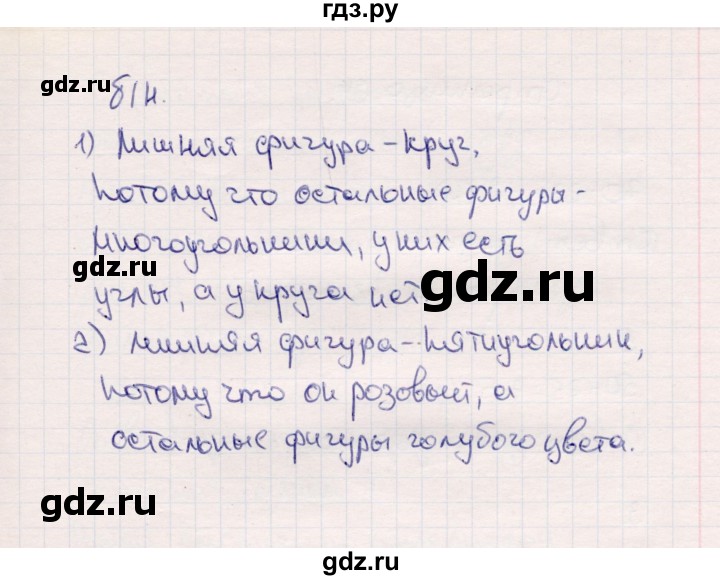 гдз.ру
gdz.ru
б/н.
1) Лишняя фигура – круг,
потому что остальные фигуры –
многоугольники, у них есть
gdz.ru
gdz.ru
углы, а у круга нет
2) лишняя фигура – пятиугольник,
потому что он розовый, а
остальные фигуры голубого цвета.
gdz.ru
gdz.ru
gdz.ru